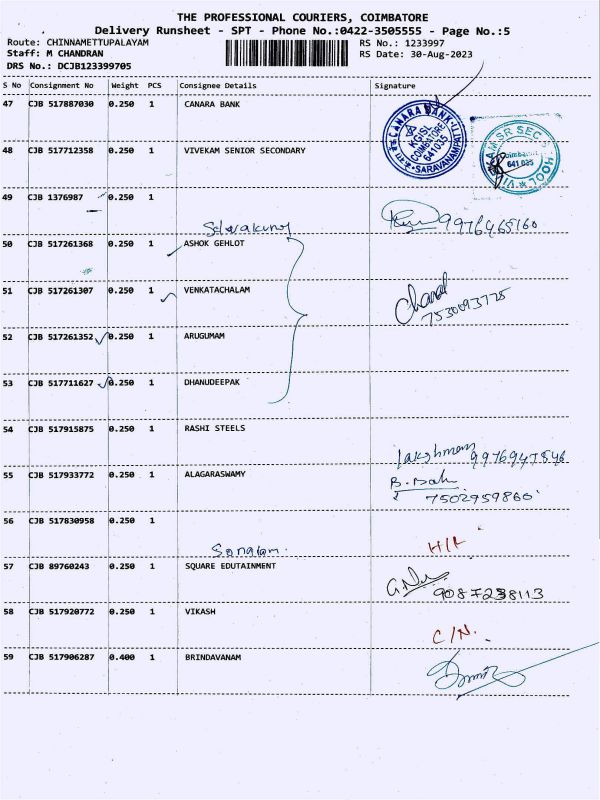 THE PROFESSIONAL COURIERS, COIMBATORE
Delivery Runsheet - SPT - Phone No.:0422-3505555 - Page No.:5
Route: CHINNAMETTUPALAYAM RS No.: 1233997
Staff: M CHANDRAN RS Date: 30-Aug-2023
DRS No.: DCJB123399705
S No Consignment No Weight PCS Consignee Details Signature
47 CJB 517887030 0.250 1 CANARA BANK
CANARA BANK
KGISL
COIMBATORE
641035
SARAVANAMPATTI
48 CJB 517712358 0.250 1 VIVEKAM SENIOR SECONDARY
SR SEC
Coimbatore
641 035
49 CJB 1376987 0.250 1
9976465160
50 CJB 517261368 0.250 1 ASHOK GEHLOT
51 CJB 517261307 0.250 1 VENKATACHALAM
7530093775
52 CJB 517261352 0.250 1 ARUGUMAM
53 CJB 517711627 0.250 1 DHANUDEEPAK
54 CJB 517915875 0.250 1 RASHI STEELS
9976947546
55 CJB 517933772 0.250 1 ALAGARASWAMY
7502959860
56 CJB 517830958 0.250 1
57 CJB 89760243 0.250 1 SQUARE EDUTAINMENT
9087238113
58 CJB 517920772 0.250 1 VIKASH
C/N.
59 CJB 517906287 0.400 1 BRINDAVANAM